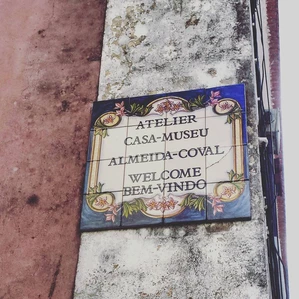 ATELIER
CASA-MUSEU
ALMEIDA-COVAL
WELCOME
BEM-VINDO